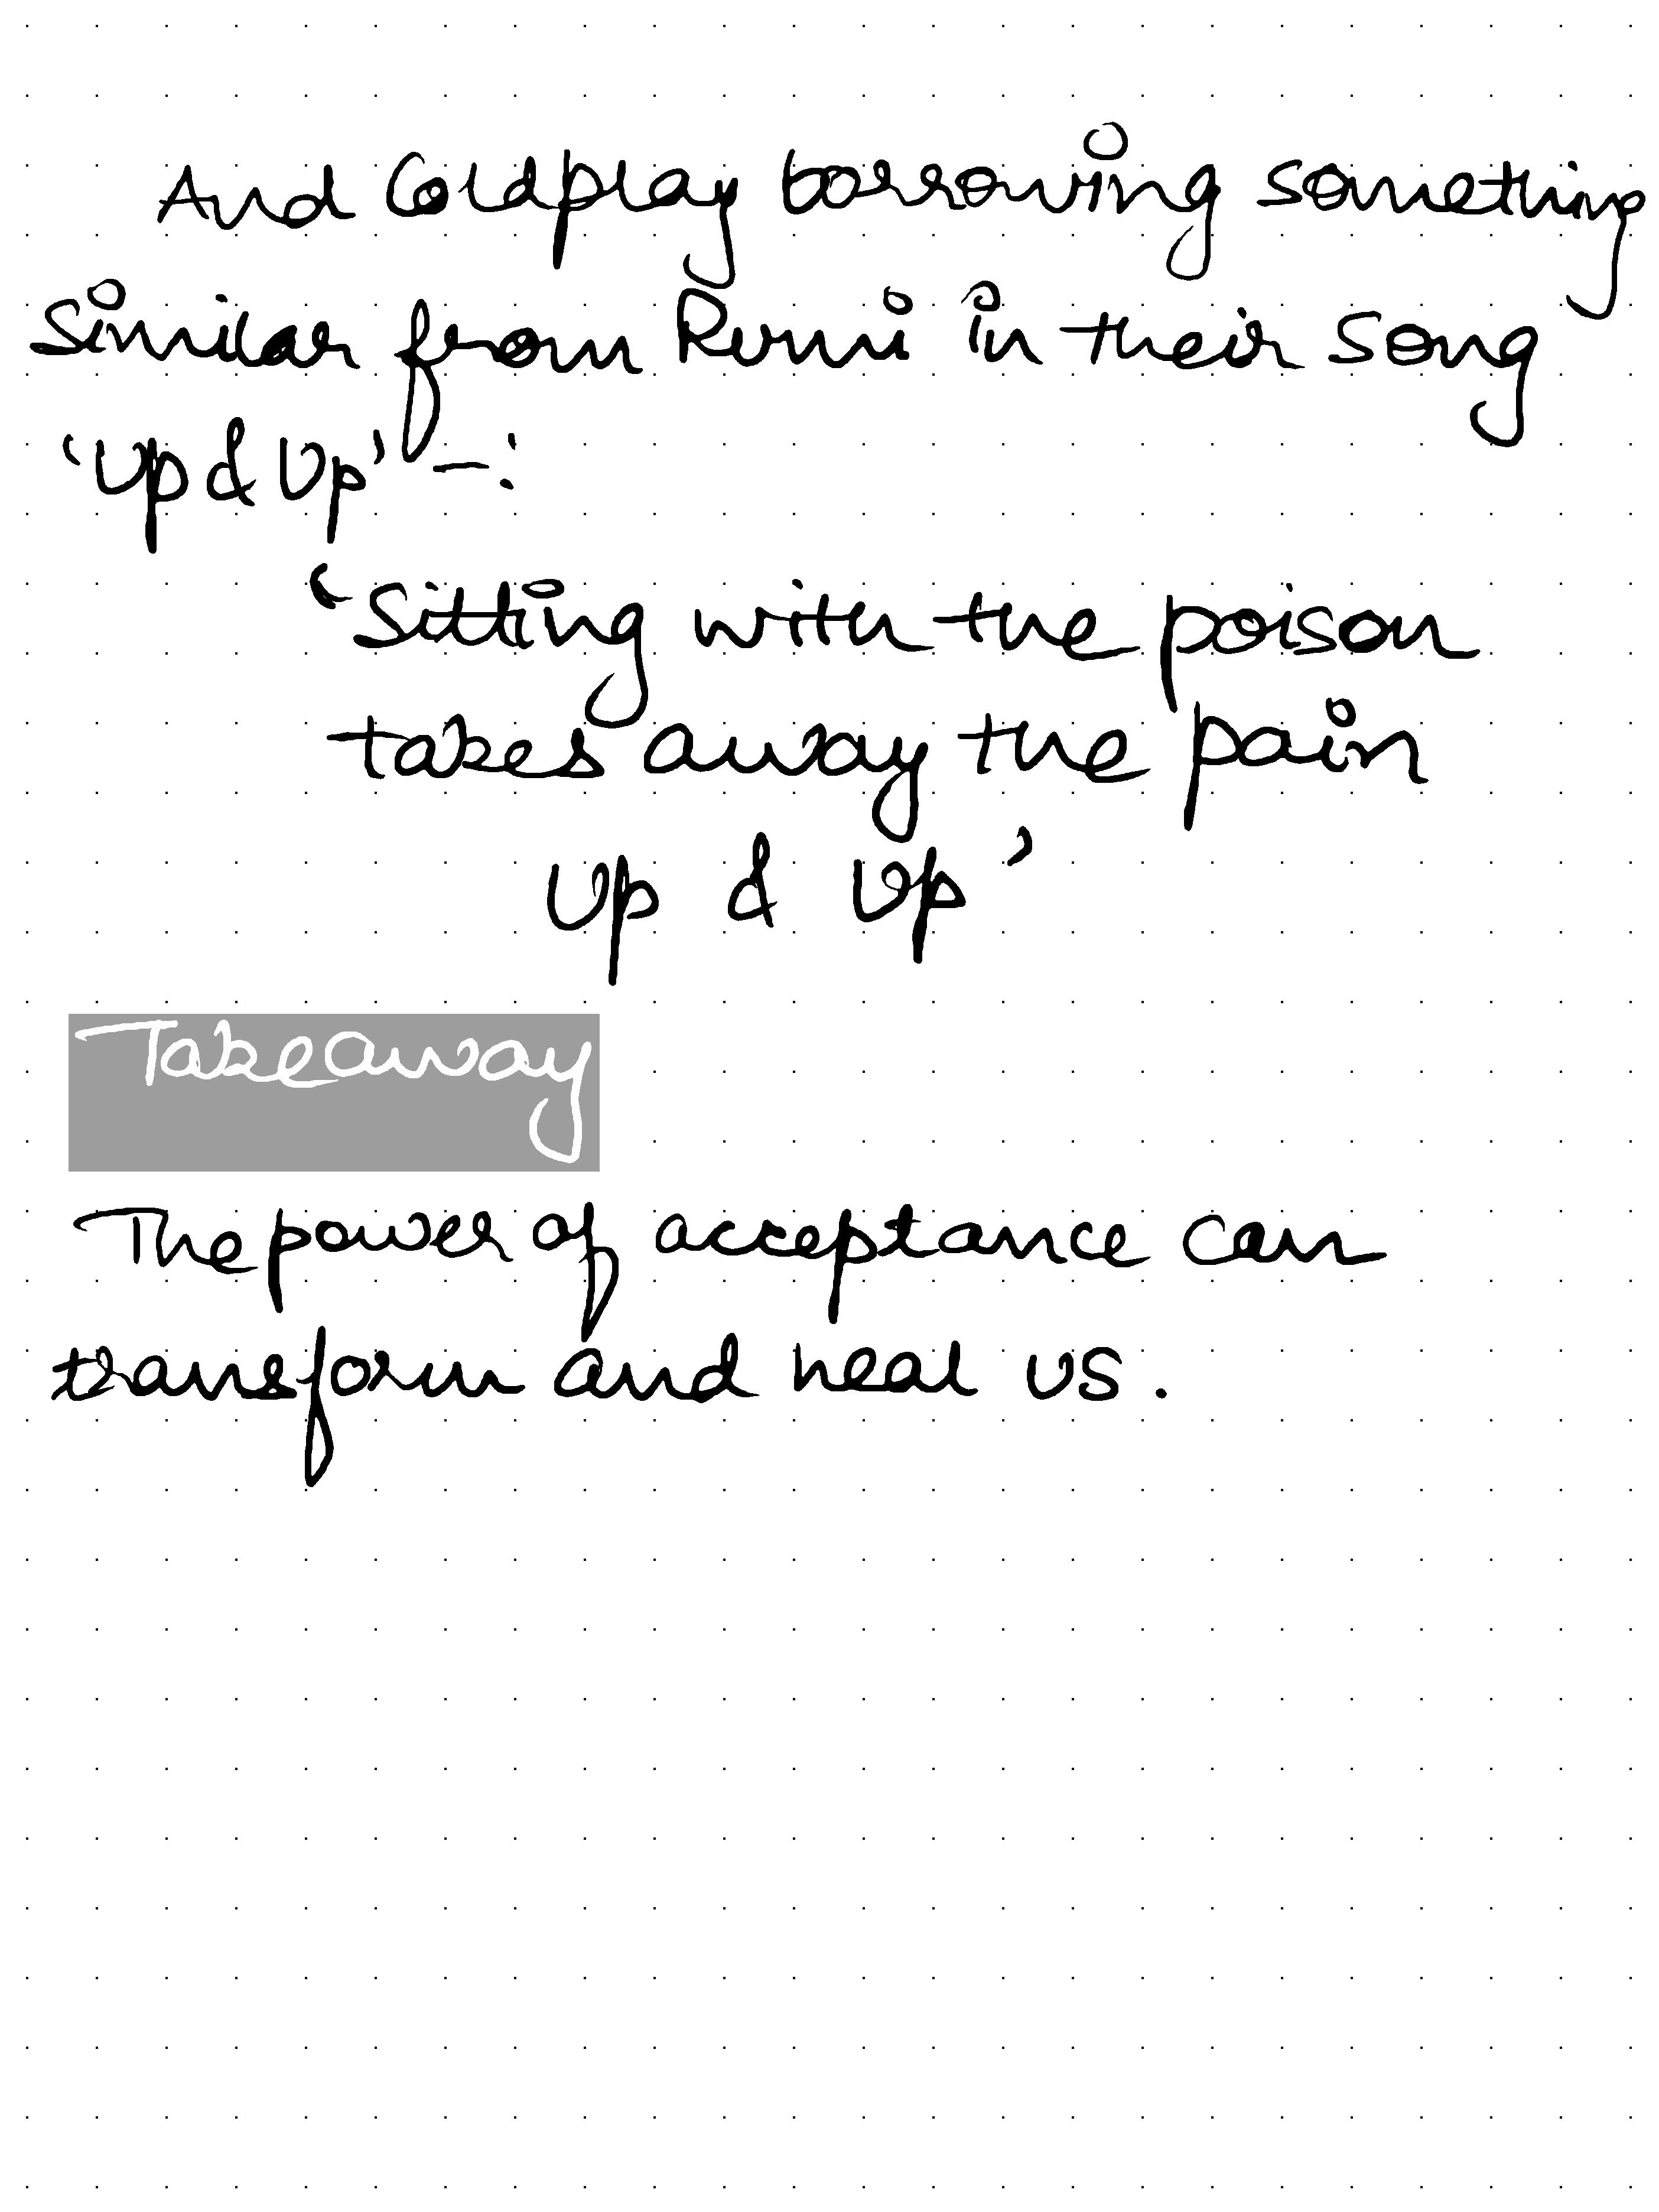 And Coldplay borrowing something
similar from Rumi in their song
'Up & Up' -:
'Sitting with the poison
takes away the pain
Up & Up'
Takeaway
The power of acceptance can
transform and heal us.